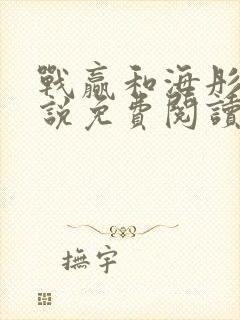 戰贏和海彤
說免費閱讀
撫宇